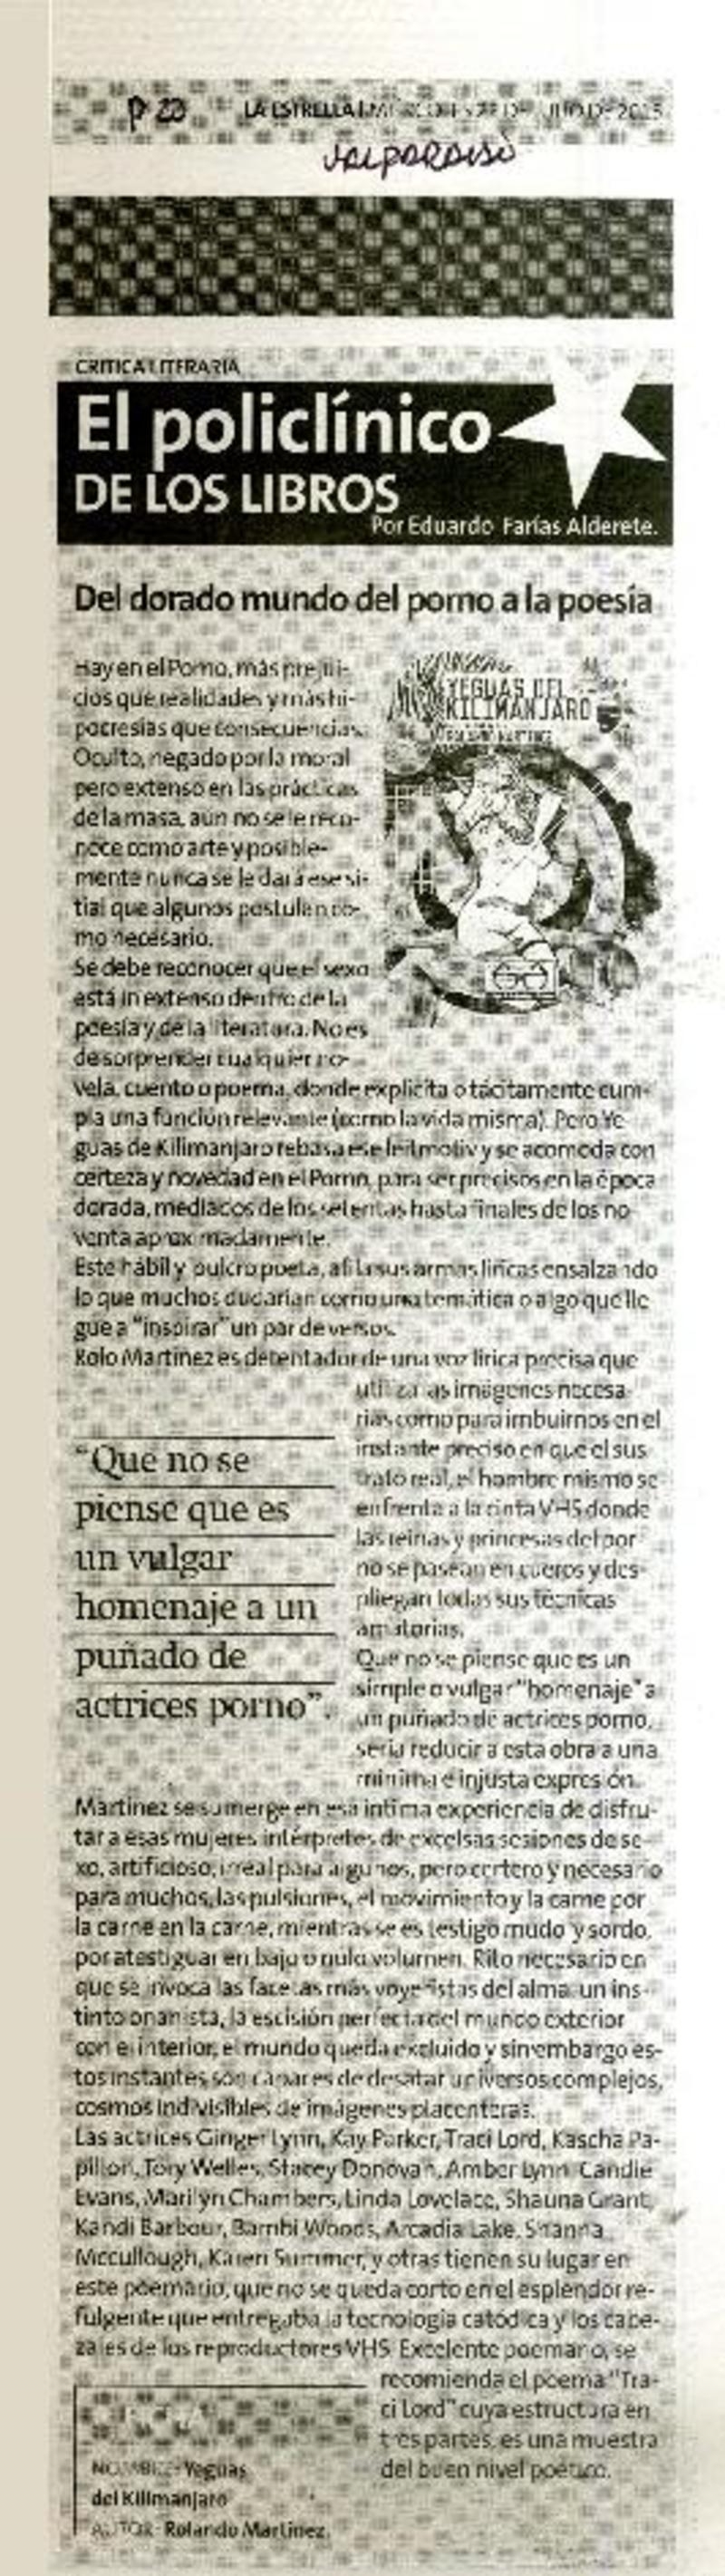 P 20 LA ESTRELLA DE 2015
VALPARAISO
CRITICA LITERARIA
El policlínico
DE LOS LIBROS
Por Eduardo Farías Alderete.
Del dorado mundo del porno a la poesía
Hay en el Porno, más prejui-
cios que realidades y más hi-
pocresías que consecuencias.
Oculto, negado por la moral
pero extenso en las prácticas
de la masa, aún no se le reco-
noce como arte y posible-
mente nunca se le dará ese si-
tial que algunos postulan co-
mo necesario.
Se debe reconocer que el sexo
está in extenso dentro de la
poesía y de la literatura. No es
de sorprender cualquier no-
vela, cuento o poema, donde explícita o tácitamente cum-
pla una función relevante (como la vida misma). Pero Ye
guas de Kilimanjaro rebasa ese leitmotiv y se acomoda con
certeza y novedad en el Porno, para ser precisos en la época
dorada, mediados de los setentas hasta finales de los no
venta aproximadamente.
Este hábil y pulcro poeta, afila sus armas líricas ensalzando
lo que muchos dudarían como una temática o algo que lle
gue a "inspirar" un par de versos.
Rolo Martínez es detentador de una voz lírica precisa que
utiliza las imágenes necesa-
rias como para imbuirnos en el
instante preciso en que el sus
trato real, el hombre mismo se
enfrenta a la cinta VHS donde
las reinas y princesas del por
no se pasean en cueros y des-
pliegan todas sus técnicas
amatorias.
Que no se piense que es un
simple o vulgar "homenaje" a
un puñado de actrices porno,
sería reducir a esta obra a una
mínima e injusta expresión.
"Que no se
piense que es
un vulgar
homenaje a un
puñado de
actrices porno".
Martínez se sumerge en esa íntima experiencia de disfru-
tar a esas mujeres intérpretes de excelsas sesiones de se-
xo, artificioso, irreal para algunos, pero certero y necesario
para muchos, las pulsiones, el movimiento y la carne por
la carne en la carne, mientras se es testigo mudo y sordo,
por atestiguar en bajo o nulo volumen. Rito necesario en
que se invoca las facetas más voyeristas del alma, un ins-
tinto onanista, la escisión perfecta del mundo exterior
con el interior, el mundo queda excluido y sin embargo es-
tos instantes son capaces de desatar universos complejos,
cosmos indivisibles de imágenes placenteras.
Las actrices Ginger Lynn, Kay Parker, Traci Lord, Kascha Pa-
pillon, Tory Welles, Stacey Donovan, Amber Lynn, Candie
Evans, Marilyn Chambers, Linda Lovelace, Shauna Grant,
Kandi Barbour, Bambi Woods, Arcadia Lake, Shanna
Mccullough, Karen Summer, y otras tienen su lugar en
este poemario, que no se queda corto en el esplendor re-
fulgente que entregaba la tecnología catódica y los cabe-
zales de los reproductores VHS. Excelente poemario, se
recomienda el poema "Tra-
ci Lord" cuya estructura en
tres partes, es una muestra
del buen nivel poético.
NOMBRE: Yeguas
del Kilimanjaro
AUTOR: Rolando Martínez.
YEGUAS DEL
KILIMANJARO
ROLANDO MARTINEZ